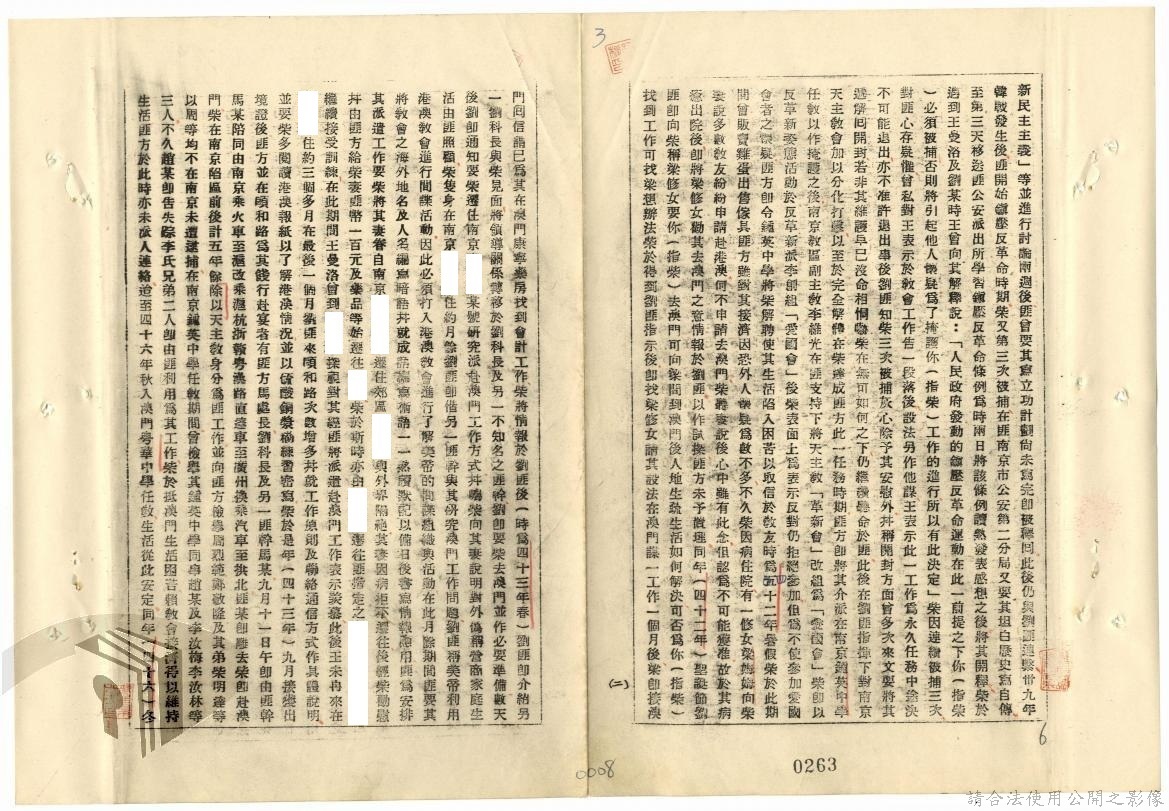 新民主主義」等並進行討論兩週後匪曾要其寫立功計劃尚未寫完即被釋回此後仍與劉匪連繫卅九年
韓戰發生後匪開始鎮壓反革命時期柴又第三次被捕在匪南京市公安第二分局又要其坦白歷史寫自傳
至第三天移送匪公安派出所學習鎮壓反革命條例爲時兩日將該條例讀熟發表感想之後將其開釋柴於
遇到王曼洛及劉某時王曾向其解釋說:「人民政府發動的鎮壓反革命運動在此一前提之下你(指柴
)必須被捕否則將引起他人懷疑爲了掩護你(指柴)工作的進行所以有此決定」柴因連續被捕三次
對匪心存疑懼曾私對王表示於教會工作告一段落後設法另作他謀王表示此一工作爲永久任務中途決
不可能退出亦不准許退出事後劉匪知柴三次被捕放心除予其安慰外幷稱開封方面曾多次來文要將其
遞解回開封若非其維護早已沒命相恫嚇柴在無可如何之下仍繼續聽命於匪此後在劉匪指揮下對南京
天主教會加以分化打擊以至於完全解體在柴達成匪方此一任務時期匪方即將其介派在南京鍾英中學
任教以作掩護之後南京教區副主教李維光在匪支持下將天主教「革新會」改組爲「愛國會」柴即以
反革新姿態活動於反革新派李創組「愛國會」後柴表面上爲表示反對仍拒絕參加但爲不使參加愛國
會者之懷疑匪方即令鍾英中學將柴解聘使其生活陷入困苦以取信於教友時爲四十二年暑假柴於此期
間曾販賣雞蛋出售傢具匪方雖對其接濟因恐外人懷疑爲數不多不久柴因病住院有一修女梁姆姆向柴
妻說多數教友紛紛申請赴港澳何不申請去澳門柴將妻說後心中雖有此念但認爲不可能獲准故於其病
癒出院後即將梁修女勸其去澳門之意情報於劉匪以作試探匪方未予置理同年(四十二年)聖誕節劉
匪即向柴稱梁修女要你(指柴)去澳門可向梁問到澳門後人地生疏生活如何解決可否爲你(指柴)
找到工作可找梁想辦法柴於得到劉匪指示後即找梁修女請其設法在澳門謀一工作一個月後梁即接澳
(二)
門回信謂已爲其在澳門康寧藥房找到會計工作柴將情報於劉匪後(時爲四十三年春)劉匪即介紹另
一劉科長與柴見面將領導關係轉移於劉科長及另一不知名之匪幹劉即要柴去澳門並作必要準備數天
後劉即通知要柴遷住南京
某號研究派赴澳門工作方式幷囑柴向其妻說明對外僞稱營商家庭生
活由匪照顧柴隻身在南京
住約月餘劉匪即偕另一匪幹與其研究澳門工作問題劉匪稱美帝利用
港澳教會進行間諜活動因此必須打入港澳教會進行了解美帝的間諜組織與活動在此月餘期間匪要其
將教會之海外地名及人名編寫暗語幷就成語編寫術語一一熟讀默記以備日後書寫情報應用匪爲安排
其派遣工作要柴將其妻眷自南京
遷往郊區
與外界隔絕其妻因病拒不遷往後經柴勸慰
幷由匪方給柴妻匪幣一百元及藥品等始遷往
柴於斯時亦由
遷往匪指定之
繼續接受訓練在此期間王曼洛曾到
探視對其經匪將派遣赴澳門工作表示羨慕此後王未再來在
住約三個多月在最後一個月劉匪來頤和路次數增多幷就工作原則及聯絡通信方式作具體說明
並要柴多閱讀港澳報紙以了解港澳情況並以
密寫柴於是年(四十三年)九月接獲出
境證後匪方並在頤和路爲其餞行赴宴者有匪方馬處長劉科長及另一匪幹馬某九月十一日午即由匪幹
馬某陪同由南京乘火車至滬改乘滬杭浙贛粵漢路直達車至廣州換乘汽車至拱北匪某即離去柴即赴澳
門柴在南京陷區前後計五年餘除以天主教身分爲匪工作並向匪方檢舉周
及其弟柴明達等
以周等均不在南京未遭逮捕在南京鍾英中學任教期間曾檢舉其鍾英中學同事趙某及李汝梅李汝林等
三人不久趙某即告失踪李氏兄弟二人即由匪利用爲其工作柴於抵澳門生活困苦賴教會接濟得以維持
生活匪方於此時亦未派人連絡迨至四十六年秋入澳門粵華中學任教生活從此安定同年(四十六)冬
3
6
0008
0263
請合法使用公開之影像